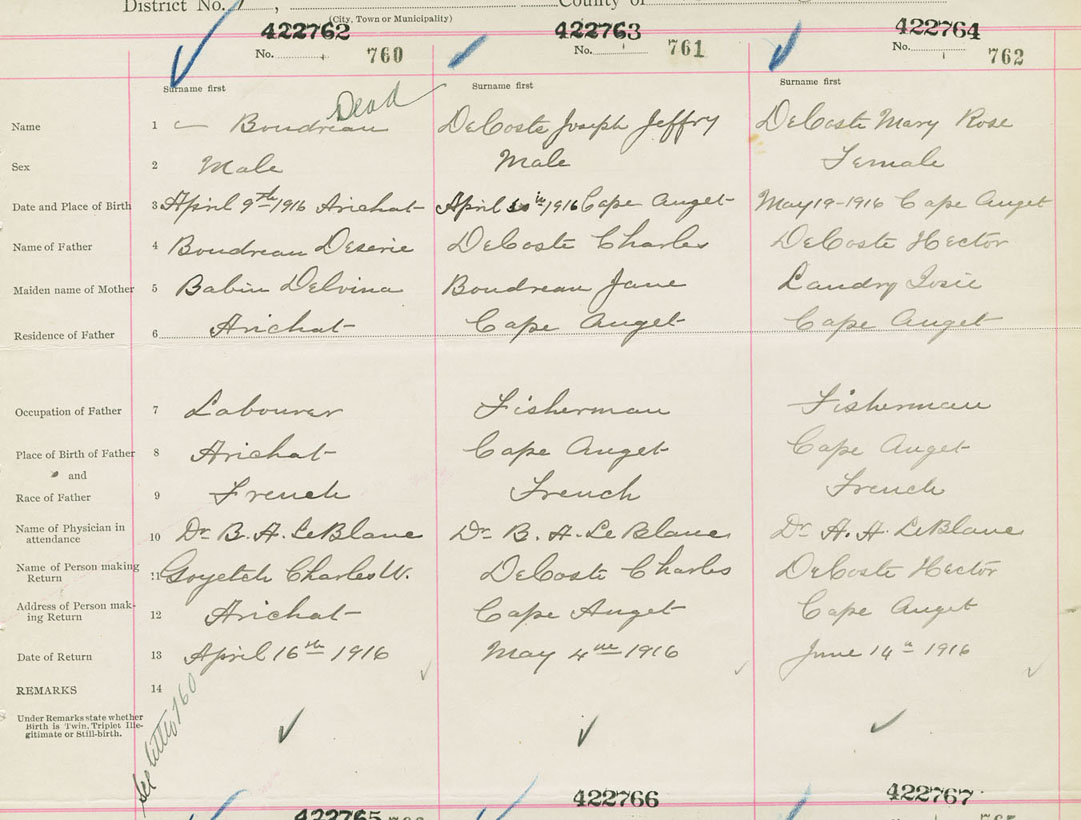 District No. , County of
(City, Town or Municipality)
422762 422763 422764
No. 760 No. 761 No. 762
Surname first Surname first Surname first
Dead
Name 1 — Boudreau DeCoste Joseph Jeffry DeCoste Mary Rose
Sex 2 Male Male Female
Date and Place of Birth 3 April 9th 1916 Arichat April 1916 Cape Auget May 19-1916 Cape Auget
Name of Father 4 Boudreau Deserie DeCoste Charles DeCoste Hector
Maiden name of Mother 5 Babin Delvina Boudreau Jane Landry Josie
Residence of Father 6 Arichat Cape Auget Cape Auget
Occupation of Father 7 Labourer Fisherman Fisherman
Place of Birth of Father 8 Arichat Cape Auget Cape Auget
and
Race of Father 9 French French French
Name of Physician in
attendance 10 Dr B. A. LeBlanc Dr B. A. LeBlanc Dr A. A. LeBlanc
Name of Person making
Return 11 Goyetch Charles W. DeCoste Charles DeCoste Hector
Address of Person mak-
ing Return 12 Arichat Cape Auget Cape Auget
Date of Return 13 April 16th 1916 May 4th 1916 June 14th 1916
REMARKS 14
Under Remarks state whether
Birth is Twin, Triplet Ille-
gitimate or Still-birth.
See letter 760
422765 422766 422767